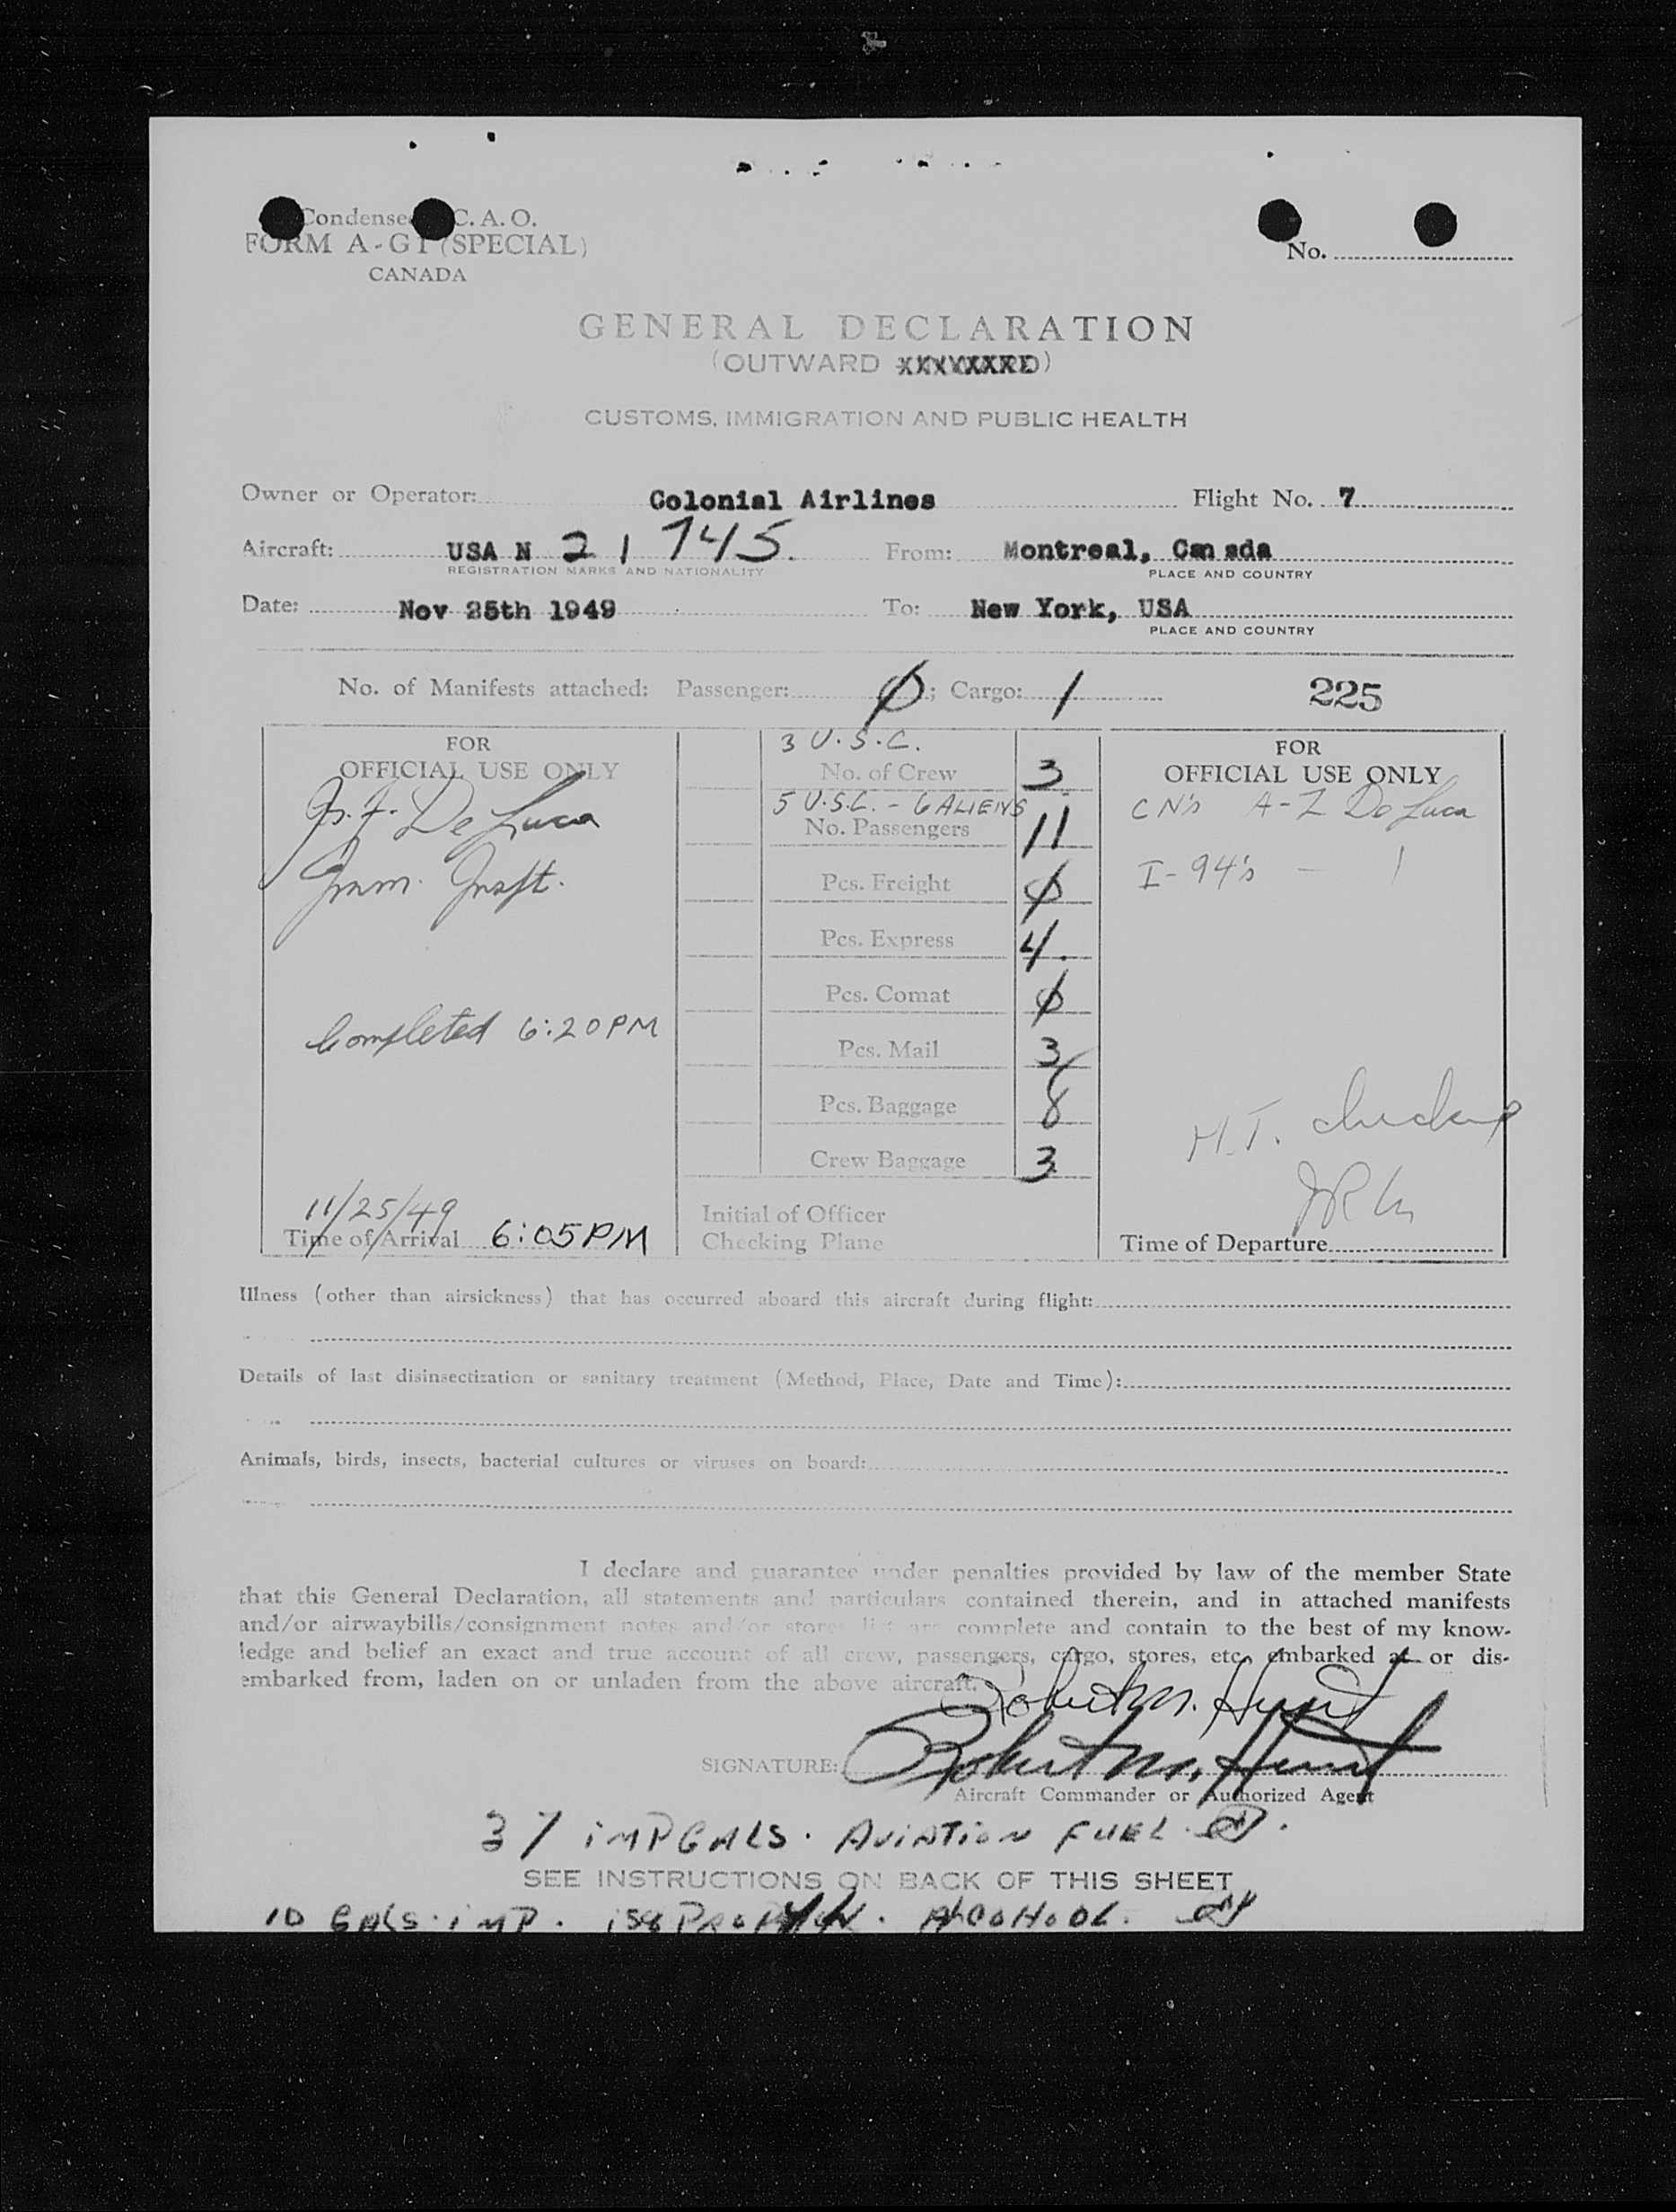 Condensed C. A. O.
FORM A-G1 (SPECIAL)
CANADA
No.
GENERAL DECLARATION
(OUTWARD XXXXXXXX)
CUSTOMS, IMMIGRATION AND PUBLIC HEALTH
Owner or Operator: Colonial Airlines Flight No. 7
Aircraft: USA N 21745. From: Montreal, Canada
REGISTRATION MARKS AND NATIONALITY PLACE AND COUNTRY
Date: Nov 25th 1949 To: New York, USA
PLACE AND COUNTRY
No. of Manifests attached: Passenger: Ø; Cargo: 1 225
FOR
OFFICIAL USE ONLY
De Luca
Imm. Inspt.
Completed 6:20 PM
11/25/49
Time of Arrival 6:05 PM
3 U.S.C.
No. of Crew 3
5 U.S.C. - 6 ALIENS
No. Passengers 11
Pcs. Freight Ø
Pcs. Express 4.
Pcs. Comat Ø
Pcs. Mail 3
Pcs. Baggage 8
Crew Baggage 3
Initial of Officer
Checking Plane
FOR
OFFICIAL USE ONLY
CN's A-Z De Luca
I-94's - 1
Time of Departure
Illness (other than airsickness) that has occurred aboard this aircraft during flight:
Details of last disinsectization or sanitary treatment (Method, Place, Date and Time):
Animals, birds, insects, bacterial cultures or viruses on board:
I declare and guarantee under penalties provided by law of the member State
that this General Declaration, all statements and particulars contained therein, and in attached manifests
and/or airwaybills/consignment notes and/or stores list are complete and contain to the best of my know-
ledge and belief an exact and true account of all crew, passengers, cargo, stores, etc. embarked at or dis-
embarked from, laden on or unladen from the above aircraft.
Robert M. Hunt
SIGNATURE: Robert M. Hunt
Aircraft Commander or Authorized Agent
37 IMP GALS. AVIATION FUEL
SEE INSTRUCTIONS ON BACK OF THIS SHEET
10 GALS. IMP. ALCOHOL.